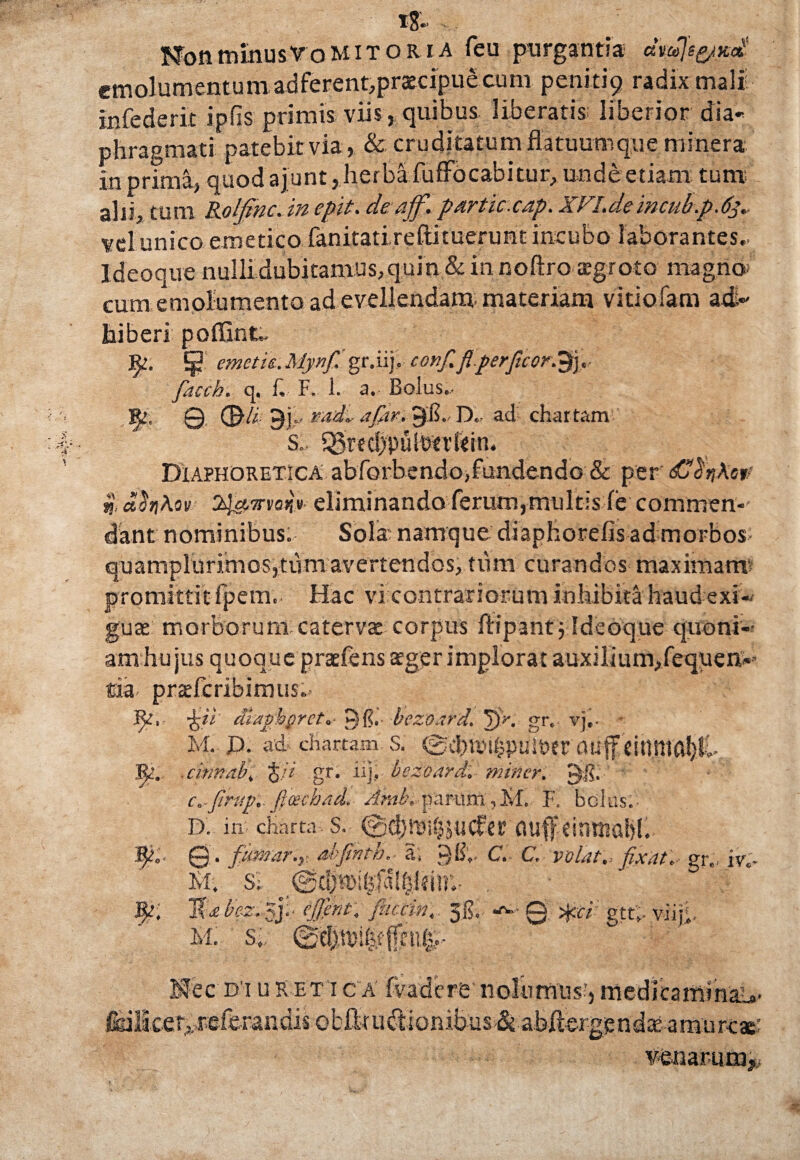 18.
Non minus VOMITORIA seu purgantia ἀνωτερικὰ
emolumentum adferent, præcipuè cum penitiꝰ radix mali
insederit ipsis primis viis, quibus liberatis liberior dia-
phragmati patebit via, & cruditatum flatuumque minera
in prima, quod ajunt, herbâ suffocabitur, unde etiam tum
alii, tum Rolfinc. in epit. de aff. partic. cap. XVI. de incub. p. 63.
vel unico emetico sanitati restituerunt incubo laborantes.
Ideoque nulli dubitamus, quin & in nostro ægroto magno
cum emolumento ad evellendam materiam vitiosam ad-
hiberi possint.
℞. ☿ emetic. Mynſ. gr. iij. conſ. fl. perſicor. ℈j.
ſacch. q. ſ. F. l. a. Bolus.
℞. ℈j. rad. aſar. ℈ß. D. ad chartam
S. Brechpülverlein.
DIAPHORETICA absorbendo, fundendo & per
ἄδηλον eliminando serum, multis se commen-
dant nominibus. Sola namque diaphoresis ad morbos
quamplurimos, tùm avertendos, tùm curandos maximam
promittit spem. Hac vi contrariorum inhibitâ haud exi-
guæ morborum catervæ corpus stipant; Ideoque quoni-
am hujus quoque præsens æger implorat auxilium, sequen-
tia præscribimus.
℞. diaphoret. ℈ß. bezoard. gr. vj.
M. D. ad chartam S. Schwitzpulver auff einmahl.
℞. cinnab. gr. iij. bezoard. miner. ℈ß.
c. ſirup. ſtœchad. Arab. parum, M. F. bolus.
D. in charta S. Schwitzzucker auff einmahl.
℞. fumar., abſinth. a. ℈ß. C. C. volat. fixat. gr. iv.
M. S. Schwitzsältzlein.
℞. bez. ʒj. eſſent. ſuccin. ʒß. gtt. viij.
M. S. Schwitzessentz.
Nec DIURETICA svadere nolumus, medicamina
scilicet, referandis obstructionibus & abstergendæ amurcæ
venarum,